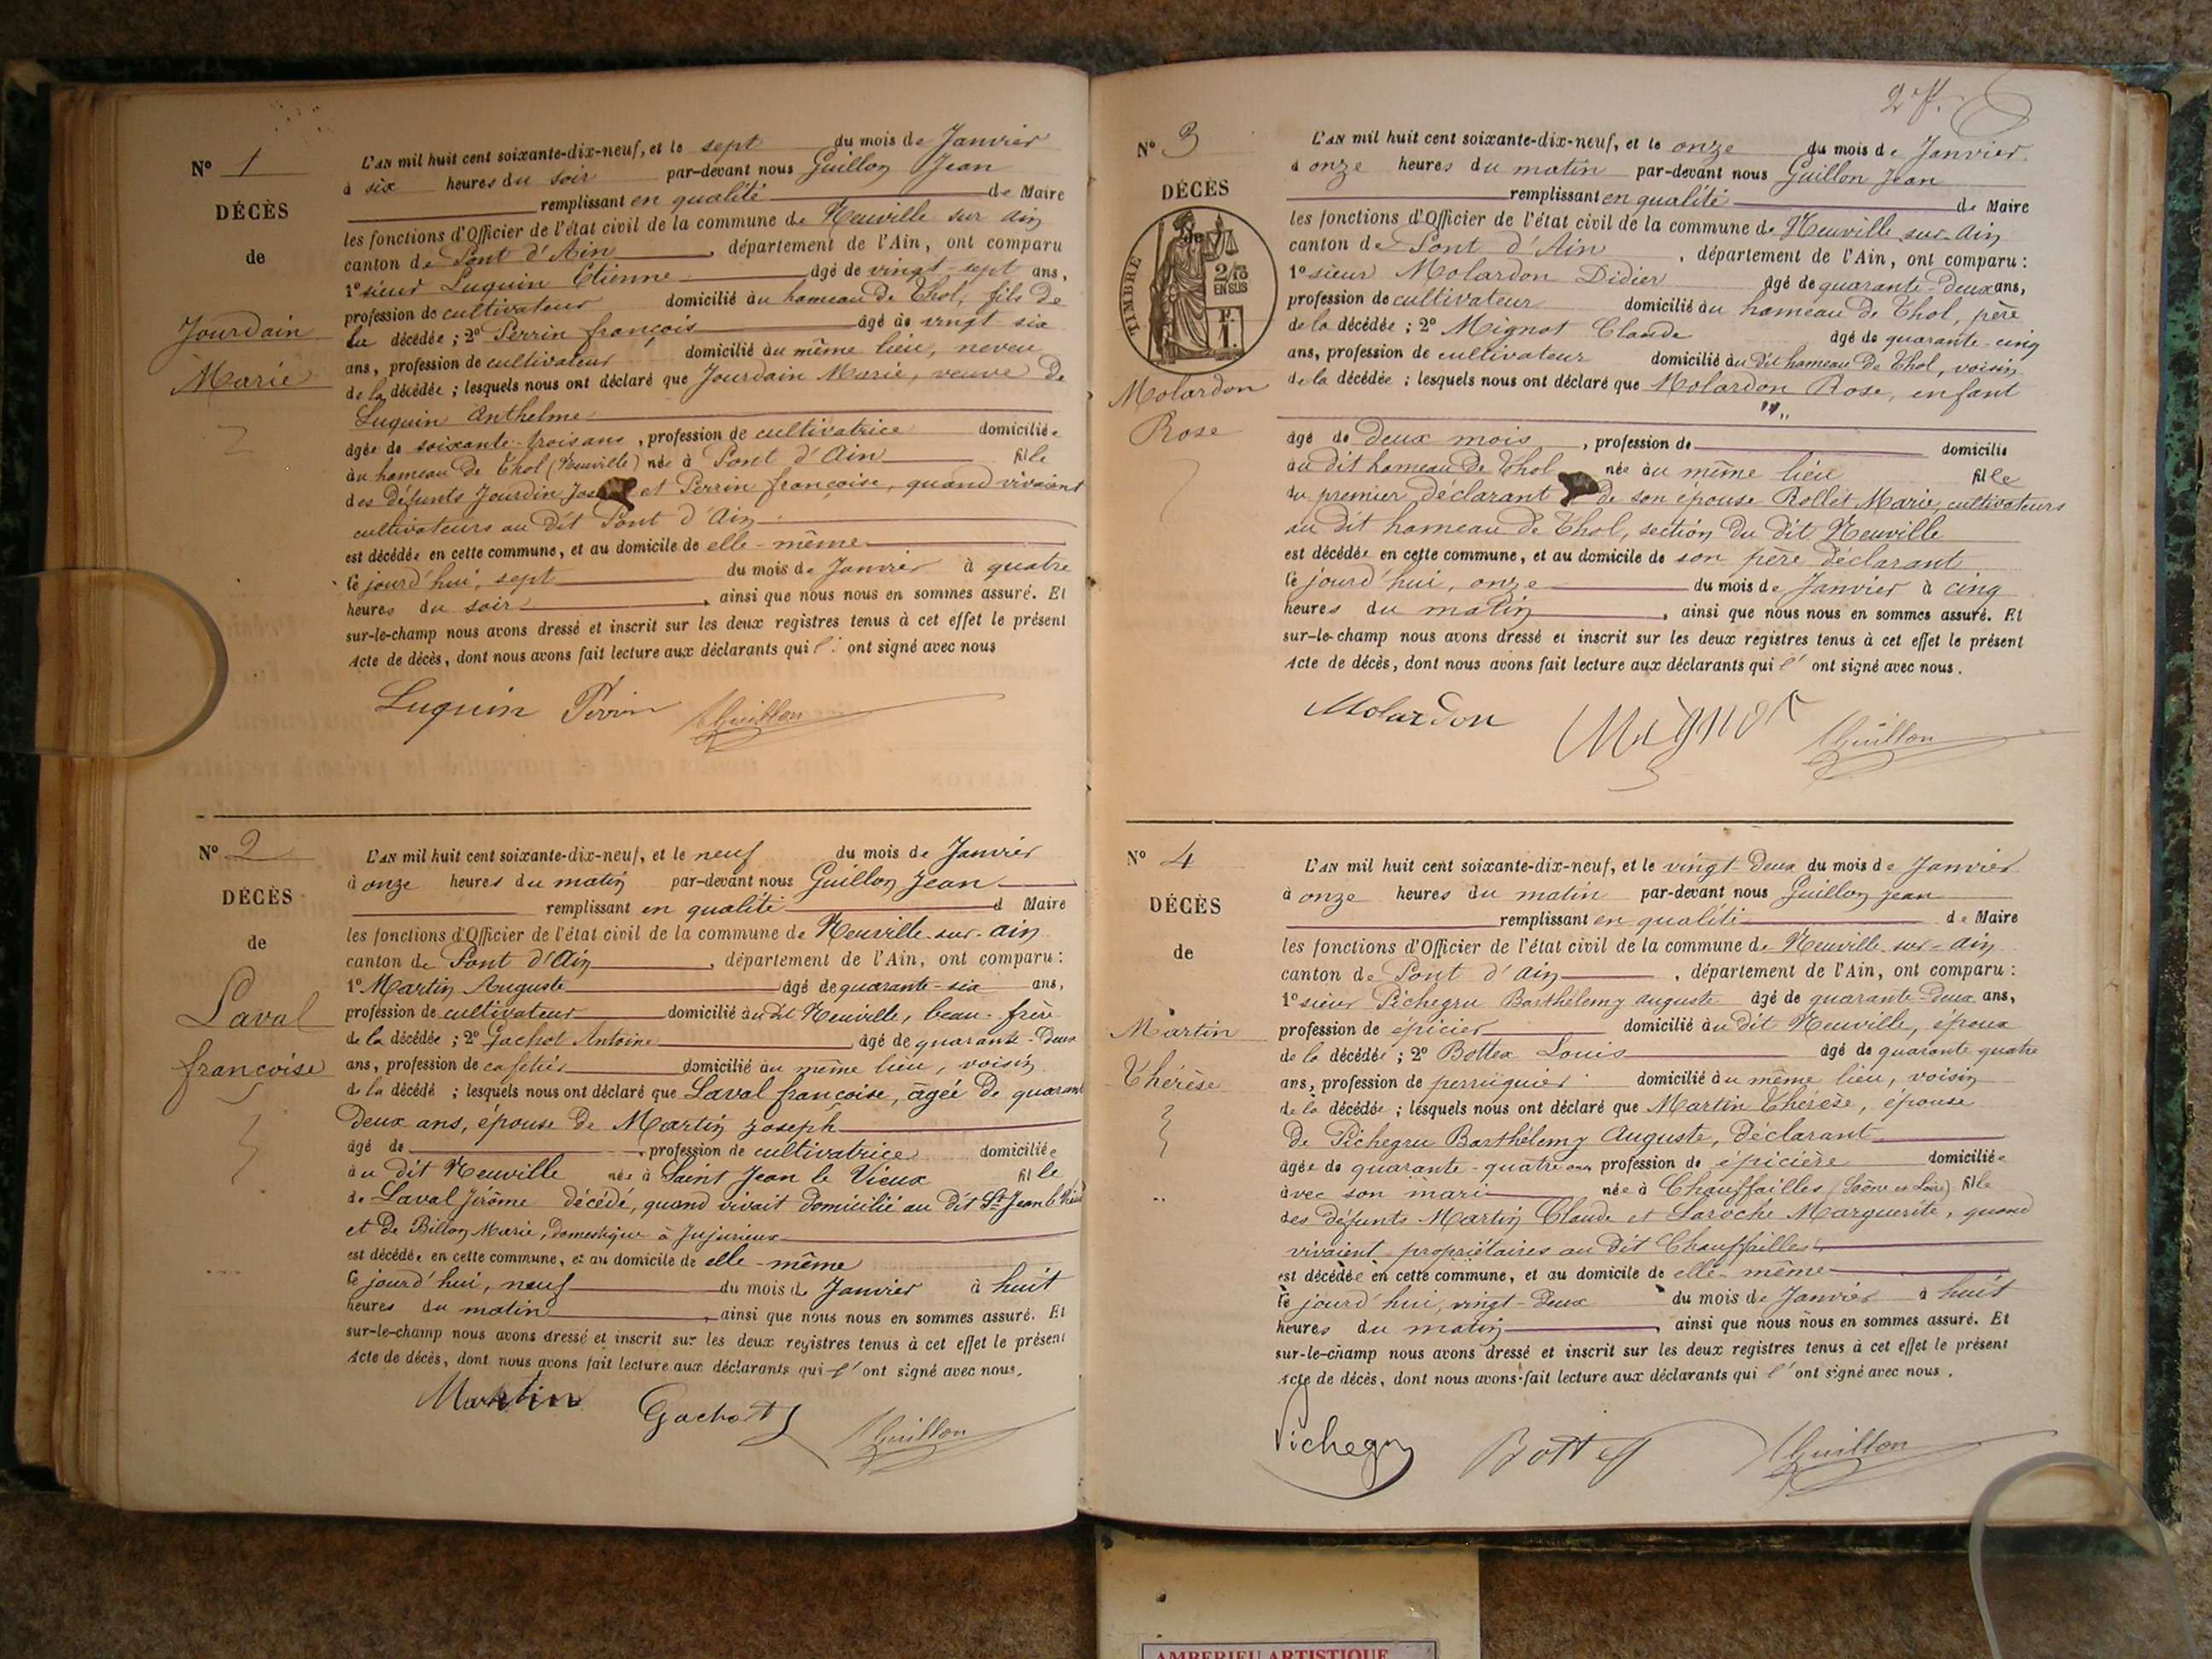 N° 1
DÉCÈS
de
Jourdain
Marie
L'AN mil huit cent soixante-dix-neuf, et le sept du mois de Janvier
à six heures du soir par-devant nous Guillon Jean
remplissant en qualité de Maire
les fonctions d'Officier de l'état civil de la commune de Neuville sur ain
canton de Pont d'Ain, département de l'Ain, ont comparu
1° sieur Luquin Etienne âgé de vingt-sept ans,
profession de cultivateur domicilié au hameau de Thol, fils de
la décédée ; 2° Perrin françois âgé de vingt-six
ans, profession de cultivateur domicilié au même lieu, neveu
de la décédée ; lesquels nous ont déclaré que Jourdain Marie, veuve de
Luquin Anthelme
âgée de soixante-trois ans, profession de cultivatrice domiciliée
au hameau de Thol (Neuville) née à Pont d'Ain fille
des défunts Jourdin et Perrin françoise, quand vivaient
cultivateurs au dit Pont d'Ain
est décédée en cette commune, et au domicile de elle-même
ce jourd'hui, sept du mois de Janvier à quatre
heures du soir, ainsi que nous nous en sommes assuré. Et
sur-le-champ nous avons dressé et inscrit sur les deux registres tenus à cet effet le présent
Acte de décès, dont nous avons fait lecture aux déclarants qui l' ont signé avec nous
Luquin Perrin JGuillon
N° 2
DÉCÈS
de
Laval
françoise
L'AN mil huit cent soixante-dix-neuf, et le neuf du mois de Janvier
à onze heures du matin par-devant nous Guillon Jean
remplissant en qualité d Maire
les fonctions d'Officier de l'état civil de la commune de Neuville-sur-ain
canton de Pont d'Ain, département de l'Ain, ont comparu :
1° Martin Auguste âgé de quarante-six ans,
profession de cultivateur domicilié au dit Neuville, beau-frère
de la décédée ; 2° Gachot Antoine, âgé de quarante-deux
ans, profession de cafetier domicilié au même lieu, voisin
de la décédé ; lesquels nous ont déclaré que Laval françoise, âgée de quarante
deux ans, épouse de Martin Joseph
âgé de, profession de cultivatrice domiciliée
au dit Neuville née à Saint Jean le Vieux fille
de Laval Jérôme décédé, quand vivait domicilié au dit St Jean le Vieux
et de Billon Marie, domestique à Jujurieux
est décédée en cette commune, et au domicile de elle-même
ce jourd'hui, neuf du mois de Janvier à huit
heures du matin, ainsi que nous nous en sommes assuré. Et
sur-le-champ nous avons dressé et inscrit sur les deux registres tenus à cet effet le présent
Acte de décès, dont nous avons fait lecture aux déclarants qui l' ont signé avec nous.
Martin Gachot JGuillon
N° 3
DÉCÈS
de
TIMBRE
2/10
EN SUS
F.
1.
Molardon
Rose
L'AN mil huit cent soixante-dix-neuf, et le onze du mois de Janvier
à onze heures du matin par-devant nous Guillon Jean
remplissant en qualité de Maire
les fonctions d'Officier de l'état civil de la commune de Neuville sur-Ain
canton de Pont d'Ain, département de l'Ain, ont comparu :
1° sieur Molardon Didier âgé de quarante-deux ans,
profession de cultivateur domicilié au hameau de Thol, père
de la décédée ; 2° Mignot Claude âgé de quarante-cinq
ans, profession de cultivateur domicilié au dit hameau de Thol, voisin
de la décédée ; lesquels nous ont déclaré que Molardon Rose, enfant
âgé de deux mois, profession de domicilié
au dit hameau de Thol née au même lieu fille
du premier déclarant de son épouse Rollet Marie, cultivateurs
au dit hameau de Thol, section du dit Neuville
est décédée en cette commune, et au domicile de son père déclarant
ce jourd'hui, onze du mois de Janvier à cinq
heures du matin, ainsi que nous nous en sommes assuré. Et
sur-le-champ nous avons dressé et inscrit sur les deux registres tenus à cet effet le présent
Acte de décès, dont nous avons fait lecture aux déclarants qui l' ont signé avec nous.
Molardon Mignot JGuillon
N° 4
DÉCÈS
de
Martin
Thérèse
L'AN mil huit cent soixante-dix-neuf, et le vingt-deux du mois de Janvier
à onze heures du matin par-devant nous Guillon Jean
remplissant en qualité de Maire
les fonctions d'Officier de l'état civil de la commune de Neuville sur-ain
canton de Pont d'Ain, département de l'Ain, ont comparu :
1° sieur Pichegru Barthélemy Auguste âgé de quarante-deux ans,
profession de épicier domicilié au dit Neuville, époux
de la décédée ; 2° Bottex Louis âgé de quarante quatre
ans, profession de perruquier domicilié au même lieu, voisin
de la décédée ; lesquels nous ont déclaré que Martin Thérèse, épouse
de Pichegru Barthélemy Auguste, déclarant
âgée de quarante-quatre ans profession de épicière domiciliée
avec son mari née à Chauffailles (Saône et Loire) fille
des défunts Martin Claude et Laroche Marguerite, quand
vivaient propriétaires au dit Chauffailles
est décédée en cette commune, et au domicile de elle-même
ce jourd'hui, vingt-deux du mois de Janvier à huit
heures du matin, ainsi que nous nous en sommes assuré. Et
sur-le-champ nous avons dressé et inscrit sur les deux registres tenus à cet effet le présent
Acte de décès, dont nous avons fait lecture aux déclarants qui l' ont signé avec nous.
Pichegru Bottex JGuillon
AMBERIEU ARTISTIQUE